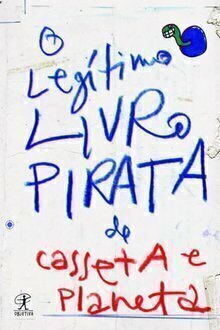 O
LegíTimo
LIVRo
PIRATA
de
cassetA e
PlaneTa
OBJETIVA